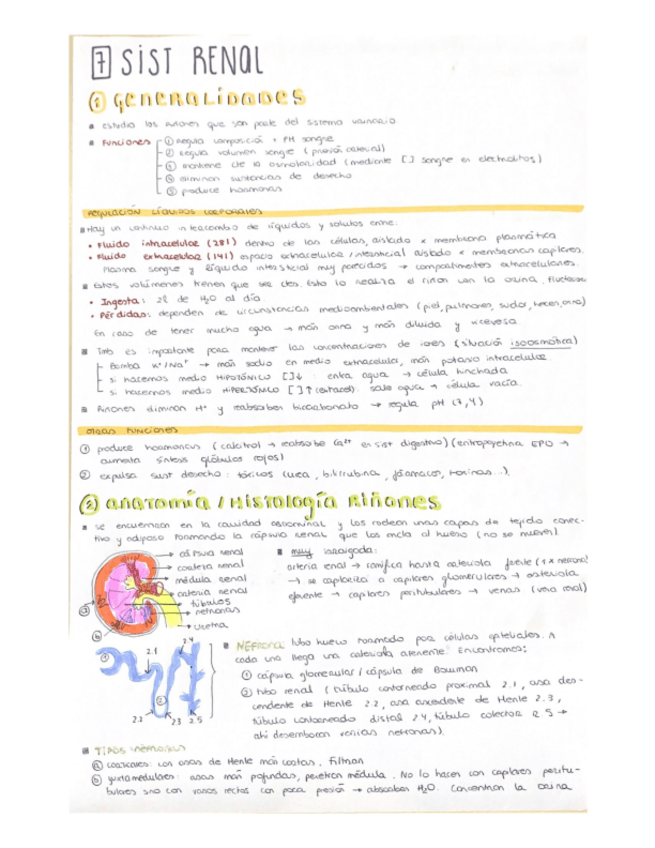 7 SIST RENAL
1 GENERALIDADES
estudia los riñones que son parte del sistema urinario
Funciones
① regula composición + PH sangre
② regula volumen sangre (presión arterial)
③ mantiene cte la osmolaridad (mediante [ ] sangre en electrolitos)
④ eliminan sustancias de desecho
⑤ produce hormonas
REGULACIÓN LÍQUIDOS CORPORALES
Hay un continuo intercambio de líquidos y solutos entre:
• Fluido intracelular (28l) dentro de las células, aislado x membrana plasmática
• Fluido extracelular (14l) espacio extracelular/intersticial aislado x membranas capilares.
Plasma sangre y líquido intersticial muy parecidos → compartimentos extracelulares.
Estos volúmenes tienen que ser ctes. Esto lo realiza el riñón con la orina, fluctuose
• Ingesta: 2l de H₂O al día
• Pérdidas: dependen de circunstancias medioambientales (piel, pulmones, sudor, heces, orina)
En caso de tener mucho agua → más orina y más diluida y viceversa.
Tmb es importante para mantener las concentraciones de iones (situación isoosmótica)
Bomba K⁺/Na⁺ → más sodio en medio extracelular, más potasio intracelular
si hacemos medio HIPOTÓNICO [ ]↓ : entra agua → célula hinchada
si hacemos medio HIPERTÓNICO [ ]↑ (extracel): sale agua → célula vacía.
Riñones eliminan H⁺ y reabsorben bicarbonato → regula pH (7,4)
OTRAS FUNCIONES
① produce hormonas (calcitriol → reabsorbe Ca²⁺ en sist digestivo) (eritropoyetina EPO →
aumenta síntesis glóbulos rojos)
② expulsa sust desecho: tóxicos (urea, bilirrubina, fármacos, toxinas...).
2 ANATOMÍA / HISTOLOGÍA RIÑONES
se encuentran en la cavidad abdominal y los rodean unas capas de tejido conec-
tivo y adiposo formando la cápsula renal que los ancla al hueso (no se mueve).
cápsula renal
corteza renal
médula renal
arteria renal
túbulos
nefronas
uretra
a
b
muy irrigada:
arteria renal → ramifica hasta arteriola aferente (1 x nefrona)
→ se capilariza a capilares glomerulares → arteriola
eferente → capilares peritubulares → venas (vena renal)
1
2.1
2.4
2
2.2
2.3
2.5
NEFRONA: tubo hueco formado por células epiteliales. A
cada una llega una arteriola aferente. Encontramos:
① cápsula glomerular / cápsula de Bowman
② tubo renal (túbulo contorneado proximal 2.1, asa des-
cendente de Henle 2.2, asa ascendente de Henle 2.3,
túbulo contorneado distal 2.4, túbulo colector 2.5 →
ahí desembocan varias nefronas).
TIPOS NEFRONAS
a corticales: con asas de Henle más cortas. Filtran
b yuxtamedulares: asas más profundas, penetran médula. No lo hacen con capilares peritu-
bulares sino con vasos rectos con poca presión → absorben H₂O. Concentran la orina